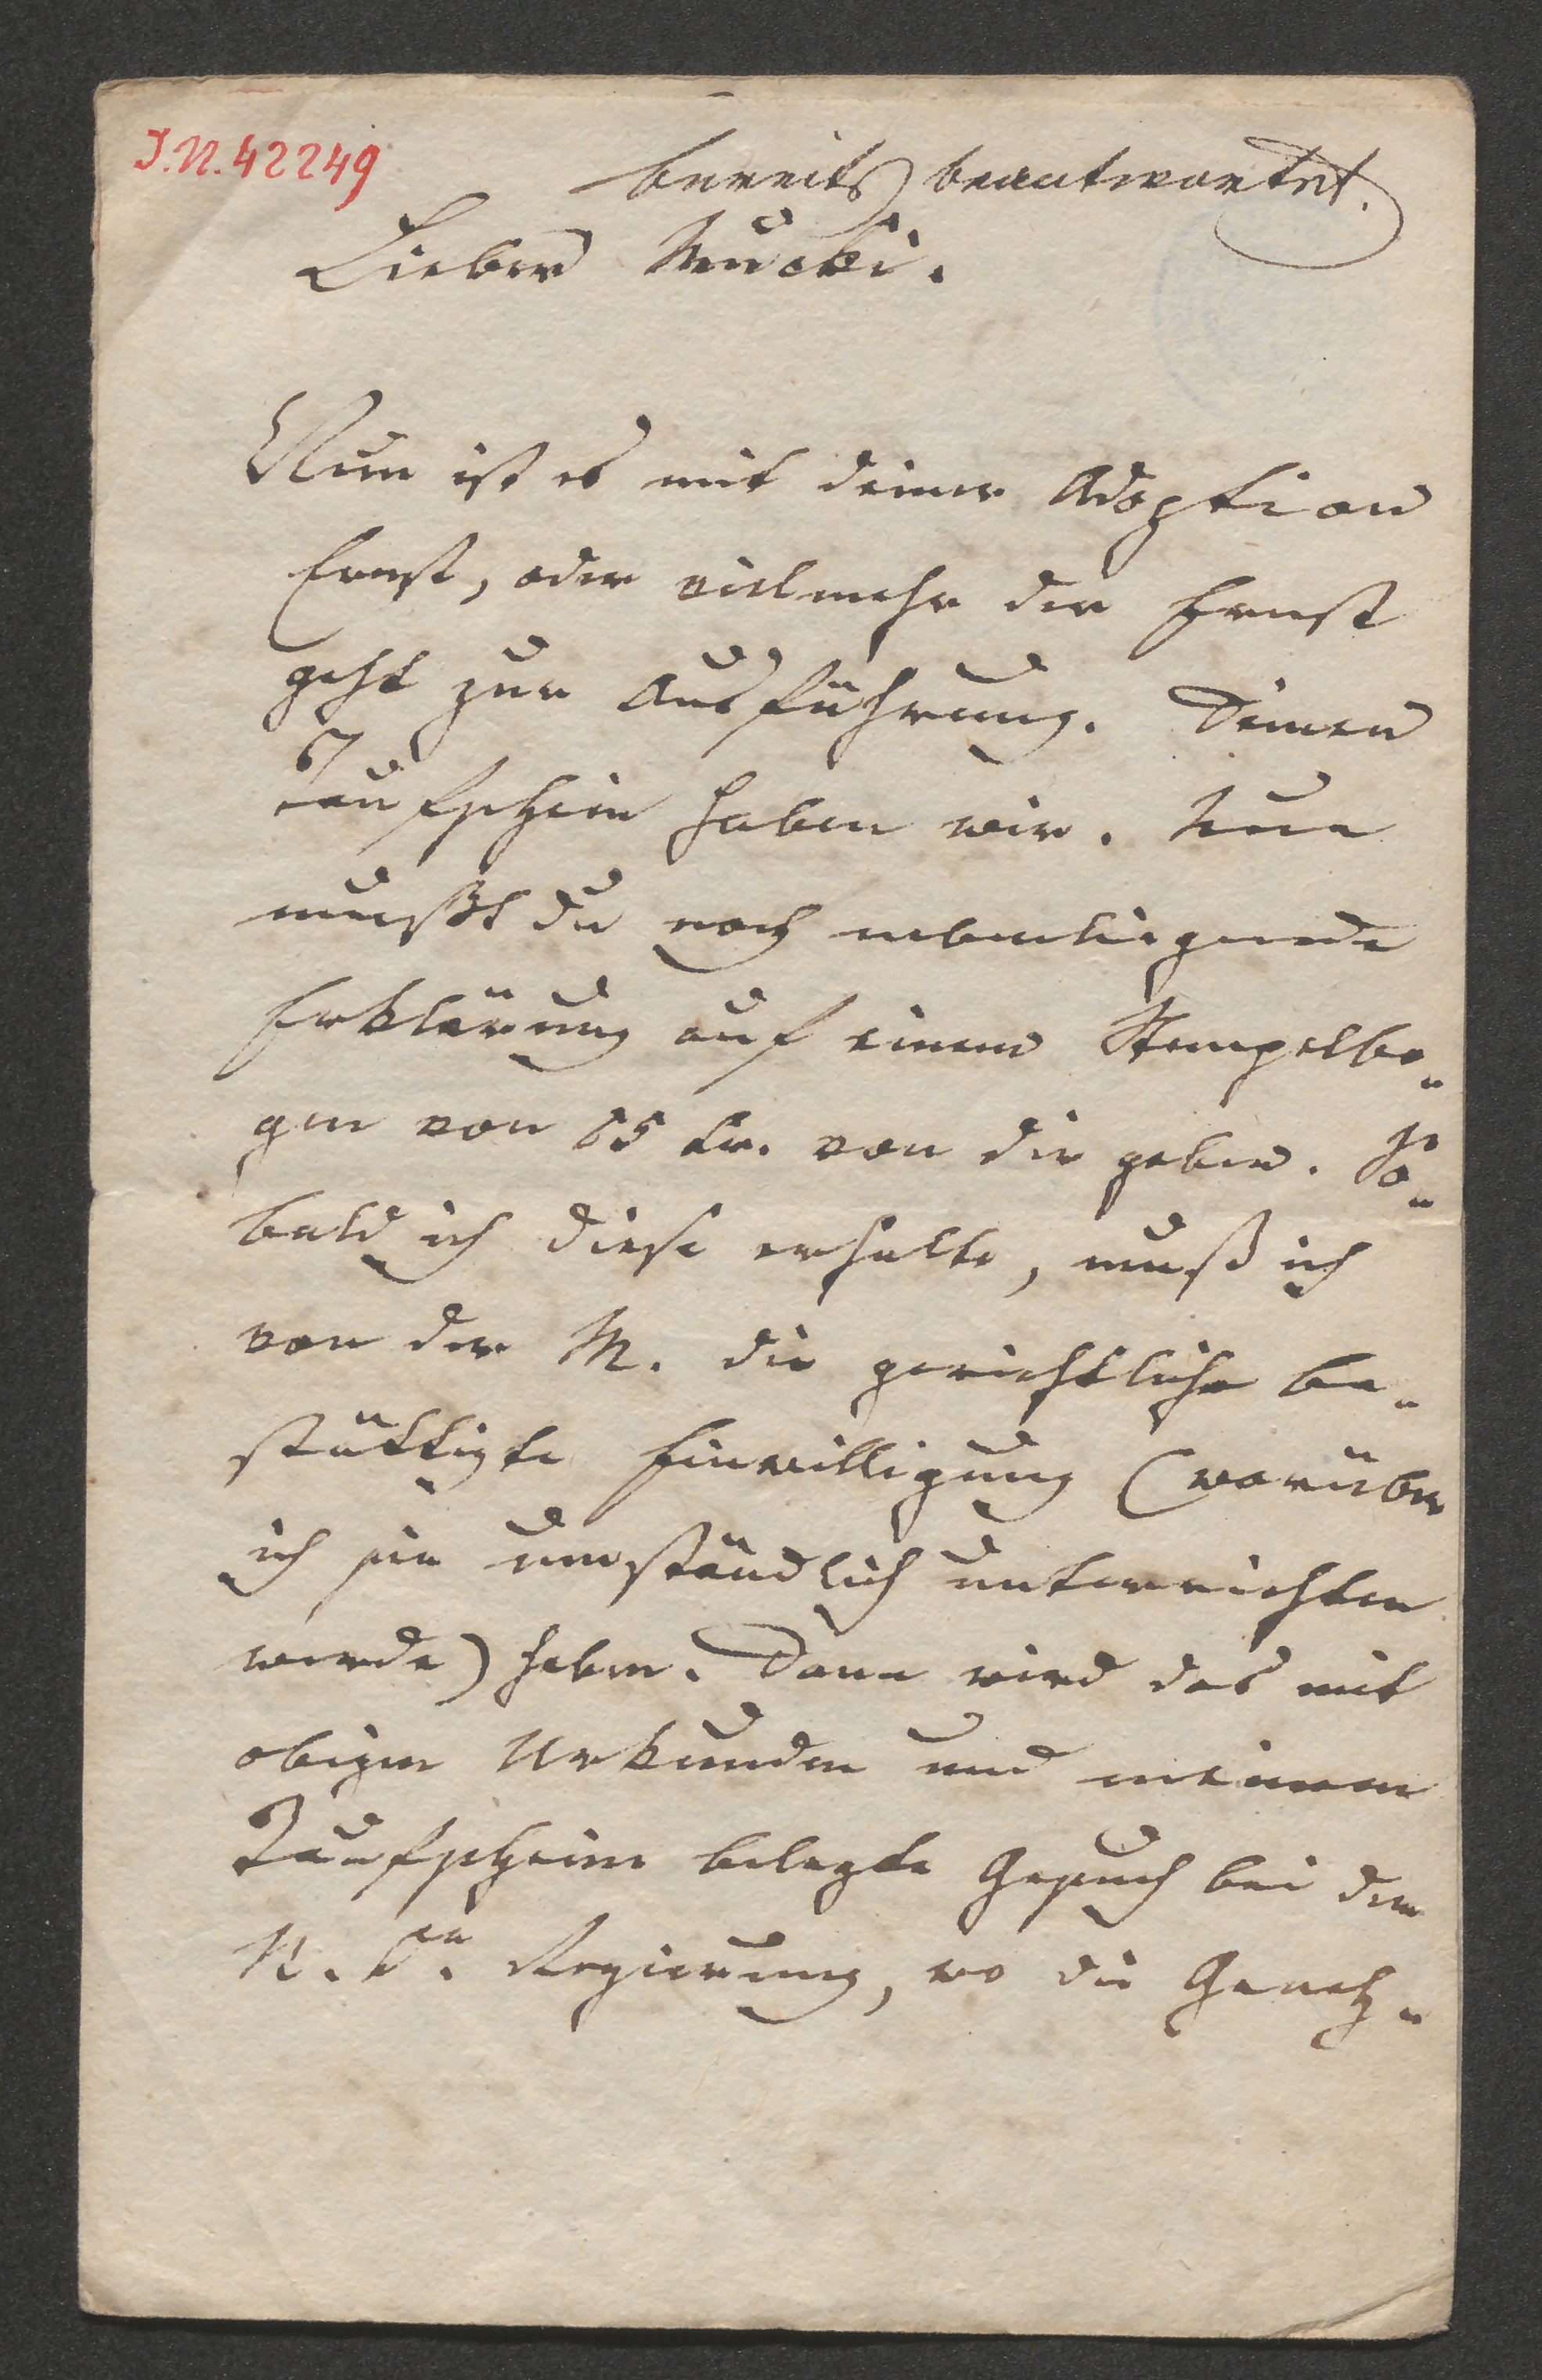 I.N. 42249
bereits beantwortet.
Lieber Mucki.
Nun ist es mit deiner Adoption
Ernst, oder vielmehr der Ernst
geht zur Ausführung. Deinen
Taufschein haben wir. Nun
mußt du noch nebenliegende
Erklärung auf einem Stempelbo-
gen von 15 kr. von dir geben. So-
bald ich diese erhalte, muß ich
von der M. die gerichtliche be-
stättigte Einwilligung (worüber
ich sie umständlich unterrichten
werde) haben. Dann wird das mit
obigen Urkunden und meinem
Taufscheine belegte Gesuch bei der
N. Ö. Regierung, wo die Geneh-